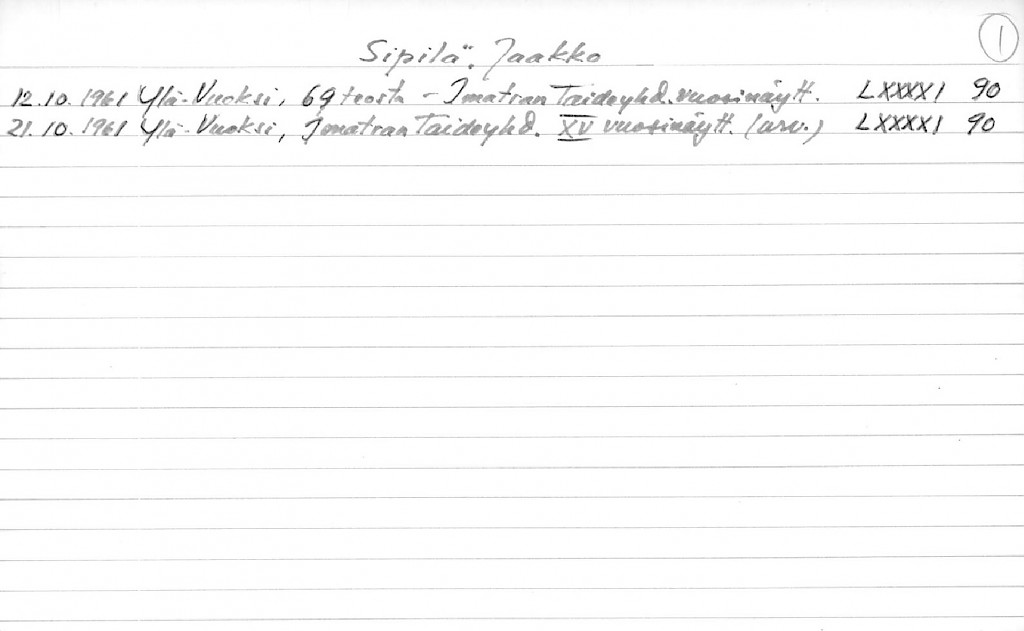 1
Sipilä, Jaakko
12.10.1961 Ylä-Vuoksi, 69 teosta - Imatran Taideyhd. vuosinäytt. LXXXXI 90
21.10.1961 Ylä-Vuoksi, Imatran Taideyhd. XV vuosinäytt. (arv.) LXXXXI 90